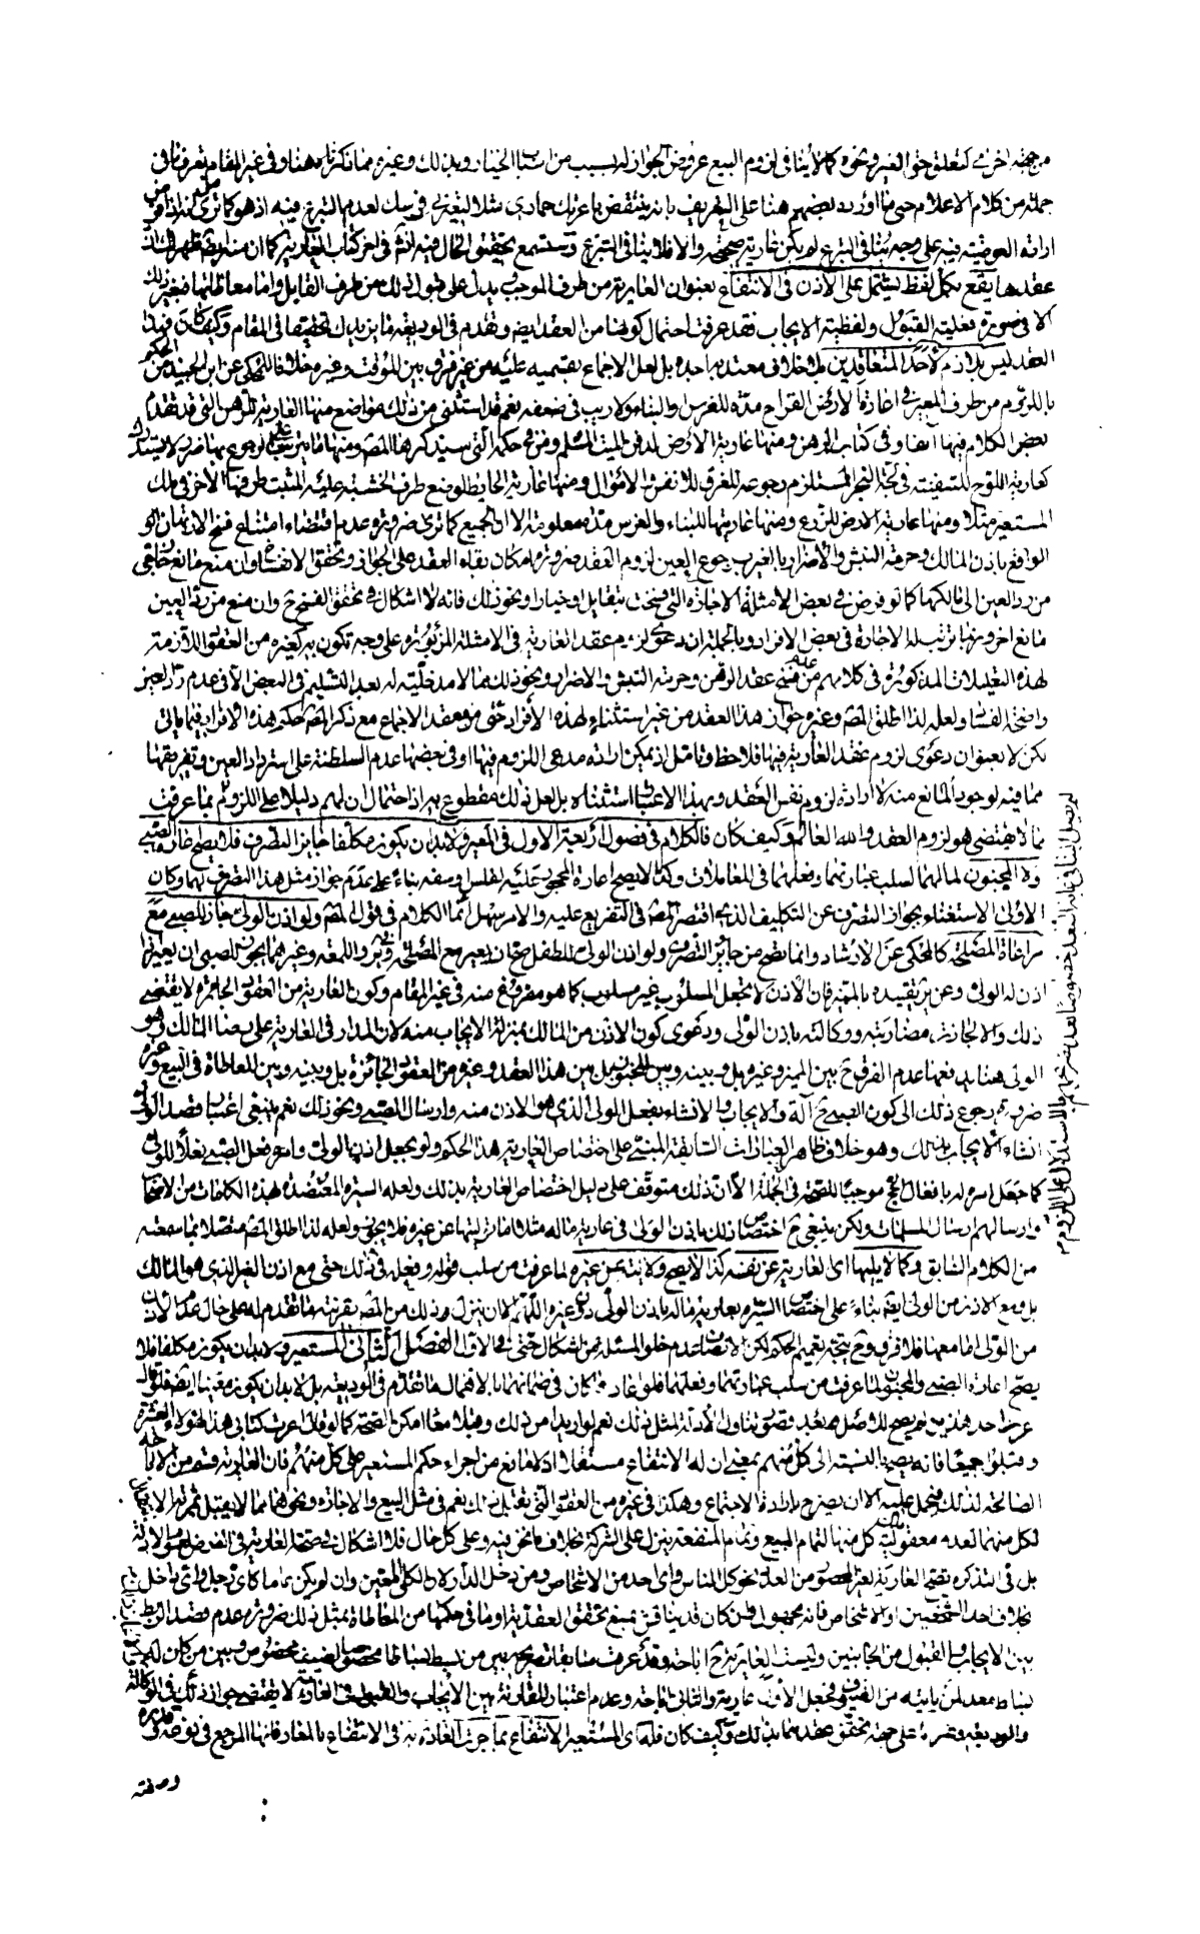 من جهة اخرى كتعلق حق الغير ونحوه كما لا ينافي لزوم البيع عروض الجواز له بسبب من اسباب الخيار وبذلك وغيره مما ذكرنا هنا وفي غير المقام تعرف ما في
جملة من كلام الاعلام حتى ما اورده بعضهم هنا على التعريف بانه ينتقض باعرتك حماري مثلا لتعيرني فرسك لعدم التبرع فيه اذ هو كما ترى
ارادة العوضية فيه على وجه ينافي التبرع لم يكن عارية صحيحة والا فلا ينافي التبرع وستسمع تحقيق الحال فيه انش في اخر كتاب العارية كما ان منه ايضا
عقدها يقع بكل لفظ يشتمل على الاذن في الانتفاع بعنوان العارية من طرف الموجب يدل على قبول ذلك من طرف القابل واما معاطاتها فبغير ذلك
الا في صورة فعلية القبول ولفظية الايجاب فقد عرفت احتمال كونها من العقد ايضا وتقدم في الوديعة ما يزيدك تحقيقا في المقام وكيف كان فهذا
العقد ليس بلازم لاحد المتعاقدين بلا خلاف معتد به اجده بل لعل الاجماع بقسميه عليه من غير فرق بين المؤقت وغيره خلافا للمحكي عن ابن الجنيد من الحكم
باللزوم من طرف المعير في اعارة الارض القراح مدة للغرس والبناء ولا ريب في ضعفه نعم قد استثنى من ذلك مواضع منها العارية للرهن التي قد تقدم
بعض الكلام فيها آنفا وفي كتاب الرهن ومنها عارية الارض لدفن الميت المسلم ومن في حكمه التي سيذكرها المصه ومنها ما يترتب على الرجوع بها ضرر لا يستدرك
كعارية اللوح للسفينة في لجة البحر المستلزم رجوعه للغرق للانفس والاموال ومنها عارية الحايط لوضع طرف الخشبة عليه المثبت طرفها الاخر في ملك
المستعير مثلا ومنها عارية الارض للزرع ومنها عاريتها للبناء والغرس مدة معلومة الا ان الجميع كما ترى ضرورة عدم اقتضاء امتناع فسخ الارتهان
الواقع باذن المالك وحرمة النبش والاضرار بالغير برجوع العين لزوم العقد ضرورة امكان بقاء العقد على الجواز وتحقق الانفساخ وان منع مانع خارجي
من رد العين الى مالكها كما لو فرض في بعض الامثلة الاجازة التي فسخت بتقايل او خيار او نحو ذلك فانه لا اشكال في تحقق الفسخ ح وان منع من رد العين
مانع اخر وربما يرتب له الاجارة في بعض الافراد وبالجملة ان دعوى لزوم عقد العارية في الامثلة المزبورة على وجه تكون به كغيره من العقود اللازمة
لهذه التعليلات المذكورة في كلامهم من منع عقد الرهن وحرمة النبش والاضرار ونحو ذلك مما لا مدخلية له بعد التسليم في البعض الا في عدم رد العين
واضحة الفساد ولعله لذا اطلق المصه وغيره جواز هذا العقد من غير استثناء لهذه الافراد حتى في معقد الاجماع مع ذكر المصه حكم هذه الافراد فيما ياتي
لكن لا بعنوان دعوى لزوم عقد العارية فيها فلاحظ وتامل اذ يمكن ارادة مدعى اللزوم فيها او في بعضها عدم السلطنة على استرداد العين وتفريغها
مما فيه لوجود المانع منه لا ارادة لزوم نفس العقد وبهذا الاعتبار استثناه بل لعل ذلك مقطوع به اذ احتمال ان لهم دليلا على اللزوم بما عرفت
مما لا يقتضي هو لزوم العقد والله العالم وكيف كان فالكلام في فصول اربعة الاول في المعير ولا بد ان يكون مكلفا جايز التصرف فلا يصح اعارة الصبي
ولا المجنون لمالهما لسلب عبارتهما وفعلهما في المعاملات وكذا لا يصح اعارة المحجور عليه لفلس وسفه بناء على عدم جواز مثل هذا التصرف لهما وكان
الاولى الاستغناء بجواز التصرف عن التكليف الذي اقتصر المصه في التفريع عليه والامر سهل انما الكلام في قول المصه ولو اذن الولي جاز للصبي مع
مراعاة المصلحة كالمحكي عن الارشاد وانما تصح من جايز التصرف ولو اذن الولي للطفل صح ان يعير مع المصلحة وير واللمعة وغيرهما يجوز للصبي ان يعير اذا
اذن له الولي وعن ير تقييده بالمميز فان الاذن لا تجعل المسلوب غير مسلوب كما هو مفروغ منه في غير المقام وكون العارية من العقود الجايزة لا يقتضي
ذلك والا لجازت مضاربته ووكالته باذن الولي ودعوى كون الاذن من المالك بمنزلة الايجاب منه لان المدار في العارية على رضا المالك وهو
الولي هنا يدفعها عدم الفرق ح بين المميز وغيره بل وبينه وبين المجنون بل بين هذا العقد وغيره من العقود الجائزة بل وبينه وبين المعاطاة في البيع وغيره
ضرورة رجوع ذلك الى كون الصبي ح آلة والايجاب والانشاء بفعل الولي الذي هو الاذن منه وارسال الصبي ونحو ذلك نعم ينبغي اعتبار قصد الولي
انشاء الايجاب بذلك وهو خلاف ظاهر العبارات السابقة المبني على اختصاص العارية بهذا الحكم ولو بجعل اذنها الولي وامره فعل الصبي فعلا للولي
كما جعل امره له بافعال الحج موجبا للصحة في الجملة الا ان ذلك متوقف على دليل اختصاص العارية بذلك ولعله السيرة المعتضدة بهذه الكلمات من الاصحاب
وارسالهم ارسال المسلمات ولكن ينبغي ح اختصاص ذلك باذن الولي في عارية ماله مثلا اما نريتها عن غيره فلا يجوز ولعله لذا اطلق المصه متصلا بما سمعته
من الكلام السابق وكما لا يليها اي العارية عن نفسه كذا لا يصح ولايته عن غيره لما عرفت من سلب قوله وفعله في ذلك حتى مع اذن الغير الذي هو المالك
بل ومع الاذن من الولي ايضا بناء على اختصاص السيرة بعارية ماله باذن الولي دون غيره اللهم الا ان ينزل ذلك من المصه بقرينة ما تقدم له على حال عدم الاذن
من الولي اما معها فلا فرق وح يتجه تعميم الحكم لكن الانصاف عدم خلو المسئلة من اشكال حتى في الاول الفصل الثاني المستعير ولا بد ان يكون مكلفا فلا
يصح اعارة الصبي والمجنون لما عرفت من سلب عبارتهما وفعلهما فلو اعاره كان في ضمانهما بالاهمال ما تقدم في الوديعة بل لا بد ان يكون معينا ايضا فلو قال
اعرت احد هذين لم يصح للاصل بعد قصور تناول الادلة لمثل ذلك نعم لو اريد امر ذلك وقبلا معا امكن الصحة كما لو قال اعرت كتابي هذا لهؤلاء العشرة
وقبلوا جميعا فانه يصح بالنسبة الى كل منهم بمعنى ان له الانتفاع مستقلا اذ لا مانع من اجراء حكم المستعير على كل منهم فان العارية قسم من الاباحة
الصالحة لذلك فيحمل عليه الا ان يصرح بارادة الاجتماع وهكذا في غيره من العقود التي تقبل ذلك نعم في مثل البيع والاجارة ونحوهما مما لا يقبل
لكل منهما لعدم معقولية ملك كل منهما لتمام المبيع وتمام المنفعة ينزل على الشركة بخلاف ما نحن فيه وعلى كل حال فلا اشكال في صحة العارية في الفرض لعموم الادلة
بل في التذكرة تصح العارية لغير المحصور من العدد نحو كل الناس واي احد من الاشخاص ومن دخل الدار والكلي المعين وان لم يكن عاما كاي رجل واي داخل
بخلاف احد الشخصين او الاشخاص فانه مجهول وان كان قد يناقش بمنع تحقق العقدية او ما في حكمها من المعاطاة بمثل ذلك ضرورة عدم قصد الربط
بين الايجاب والقبول من الجانبين وليست العارية مجرد اباحة وقد عرفت سابقا تصريحهم بين من بسط بساطا محضر ضيف مخصوص وبين من كان له
بساط معد لمن ياتيه من الضيوف فجعل الاول عارية والثاني اباحة وعدم اعتبار المقارنة بين الايجاب والقبول في العارية لا يقتضي جواز ذلك في الوكالة
والوديعة وغيره على جهة تحقق عقدهما بذلك وكيف كان فله اي المستعير الانتفاع بما جرت العادة به في الانتفاع بالمعار فانها المرجع في نوعه وقدره
وصفته